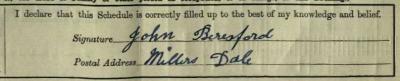 I declare that this Schedule is correctly filled up to the best of my knowledge and belief.
Signature John Beresford
Postal Address Millers Dale